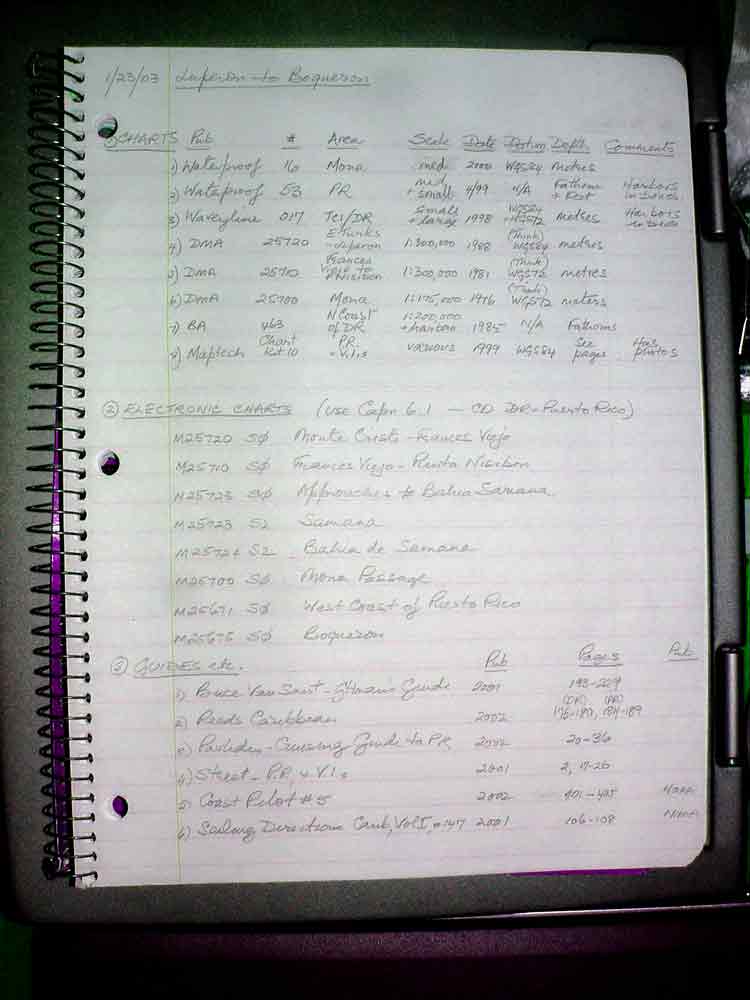 1/23/03 Luperon to Boqueron
① CHARTS Pub # Area Scale Date Datum Depth Comments
1) Waterproof 16 Mona med. 2000 WGS84 metres
2) Waterproof 53 PR med + small 4/99 N/A Fathoms + Feet Harbors
3) Waveyline 017 TCI/DR small + large 1998 WGS84 + WGS72 metres Harbors
4) DMA 25720 E. Turks - Luperon 1:300,000 1988 (Think) WGS84 metres
5) DMA 25710 Frances Viejo to P. Nisibon 1:300,000 1981 (Think) WGS72 metres
6) DMA 25700 Mona 1:175,000 1976 (Think) WGS72 meters
7) BA 463 N Coast of DR 1:200,000 + harbor 1985 N/A Fathoms
8) Maptech Chart Kit 10 P.R. + V.I.s various 1999 WGS84 See pages Has photos
② ELECTRONIC CHARTS (use Capn 6.1 — CD DR-Puerto Rico)
M25720 SØ Monte Cristi - Frances Viejo
M25710 SØ Frances Viejo - Punta Nisibon
M25723 SØ Approaches to Bahia Samana
M25723 S2 Samana
M25724 S2 Bahia de Samana
M25700 SØ Mona Passage
M25671 SØ West Coast of Puerto Rico
M25675 SØ Boqueron
③ GUIDES etc. Pub Pages Pub
1) Bruce Van Sant - Gtlman's Guide 2001 193-209
(DR) (PR)
2) Reeds Caribbean 2002 176-189, 184-189
3) Pavlidis - Cruising Guide to P.R. 2002 20-36
4) Street - P.R. & V.I.s 2001 2, 17-26
5) Coast Pilot #5 2002 401-405
6) Sailing Directions Carib, Vol I, #147 2001 106-108 NIMA